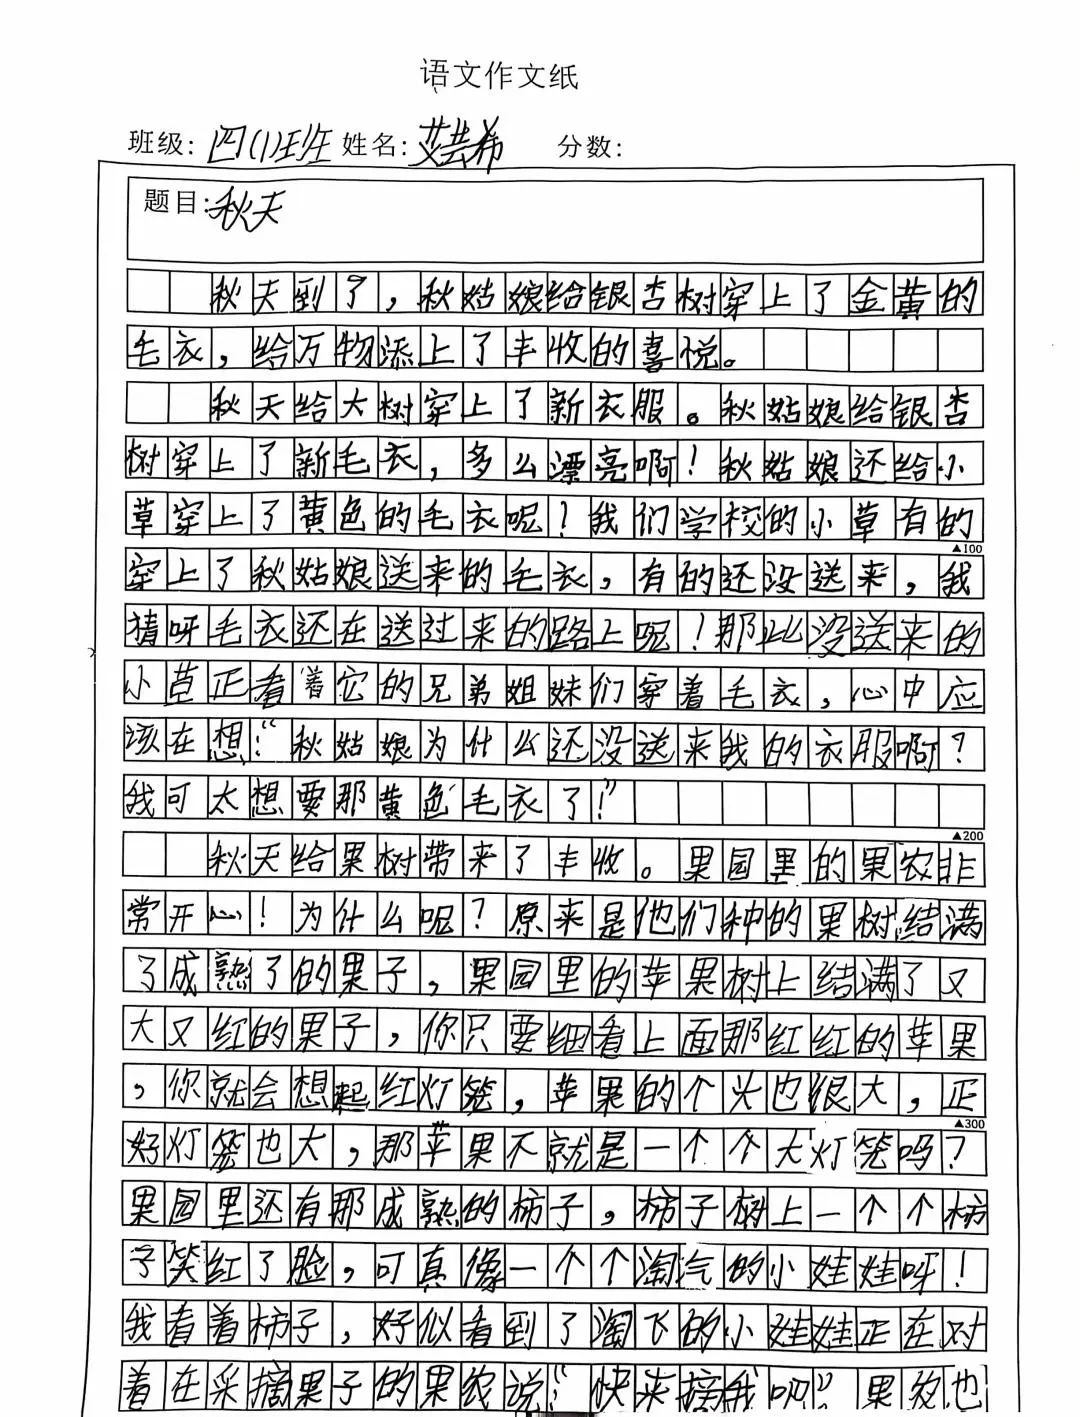 语文作文纸
班级: 四(1)班 姓名: 艾芸希 分数:
题目: 秋天
秋天到了,秋姑娘给银杏树穿上了金黄的
毛衣,给万物添上了丰收的喜悦。
秋天给大树穿上了新衣服。秋姑娘给银杏
树穿上了新毛衣,多么漂亮啊!秋姑娘还给小
草穿上了黄色的毛衣呢!我们学校的小草有的
▲100
穿上了秋姑娘送来的毛衣,有的还没送来,我
猜呀毛衣还在送过来的路上呢!那些没送来的
小草正看着它的兄弟姐妹们穿着毛衣,心中应
该在想:“秋姑娘为什么还没送来我的衣服啊?
我可太想要那黄色毛衣了!”
▲200
秋天给果树带来了丰收。果园里的果农非
常开心!为什么呢?原来是他们种的果树结满
了成熟了的果子,果园里的苹果树上结满了又
大又红的果子,你只要细看上面那红红的苹果
,你就会想起红灯笼,苹果的个头也很大,正
▲300
好灯笼也大,那苹果不就是一个个大灯笼吗?
果园里还有那成熟的柿子,柿子树上一个个柿
子笑红了脸,可真像一个个淘气的小娃娃呀!
我看着柿子,好似看到了淘气的小娃娃正在对
着在采摘果子的果农说:“快来摘我呀”果农也